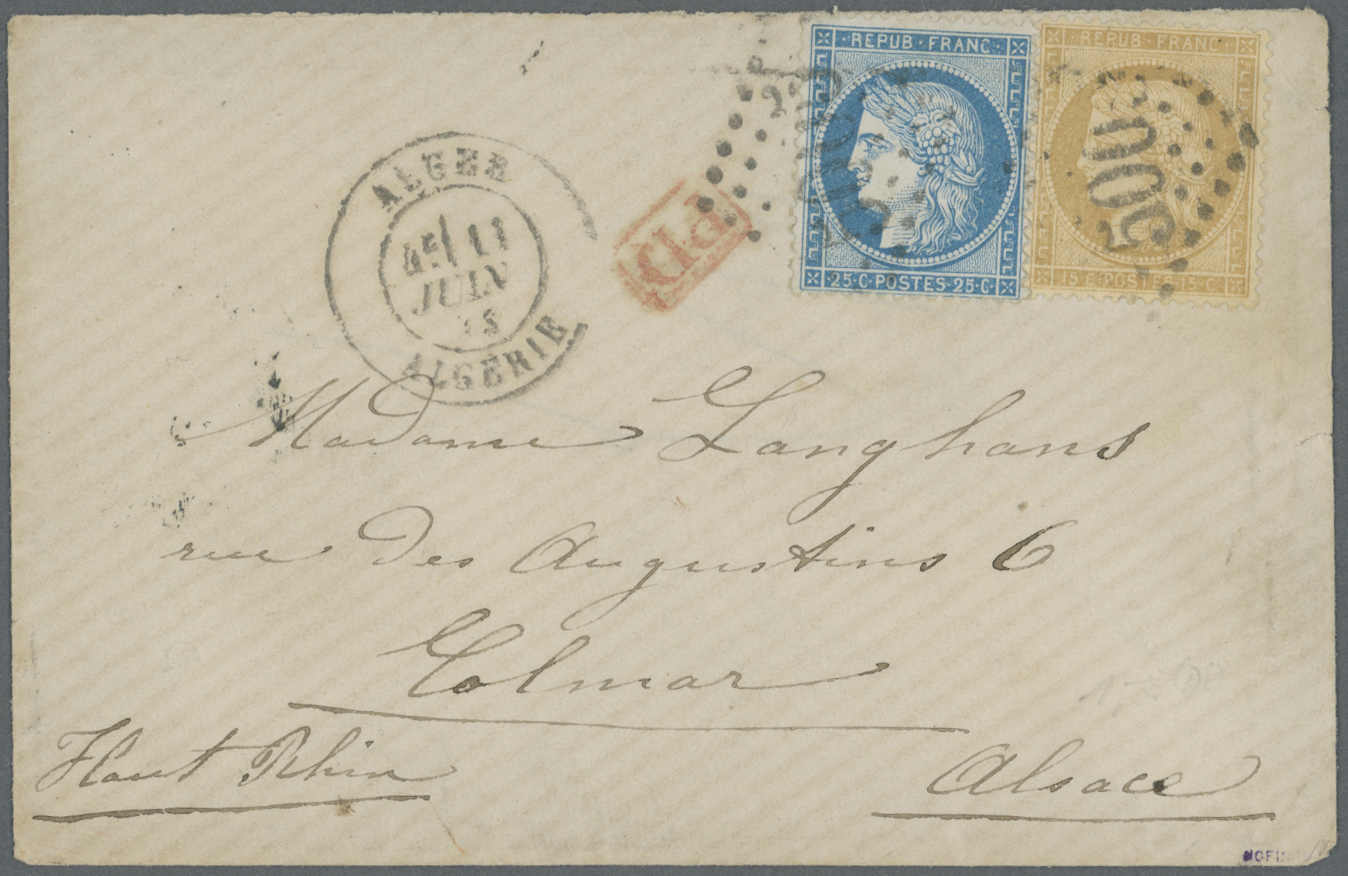 REPUB · FRANC
25 · C · POSTES · 25 · C
REPUB · FRANC
15 · C · POSTES · 15 · C
5005
5005
ALGER
4E/ 11
JUIN
ALGERIE
Madame Langhans
rue des Augustins 6
Colmar
Haut Rhin
Alsace